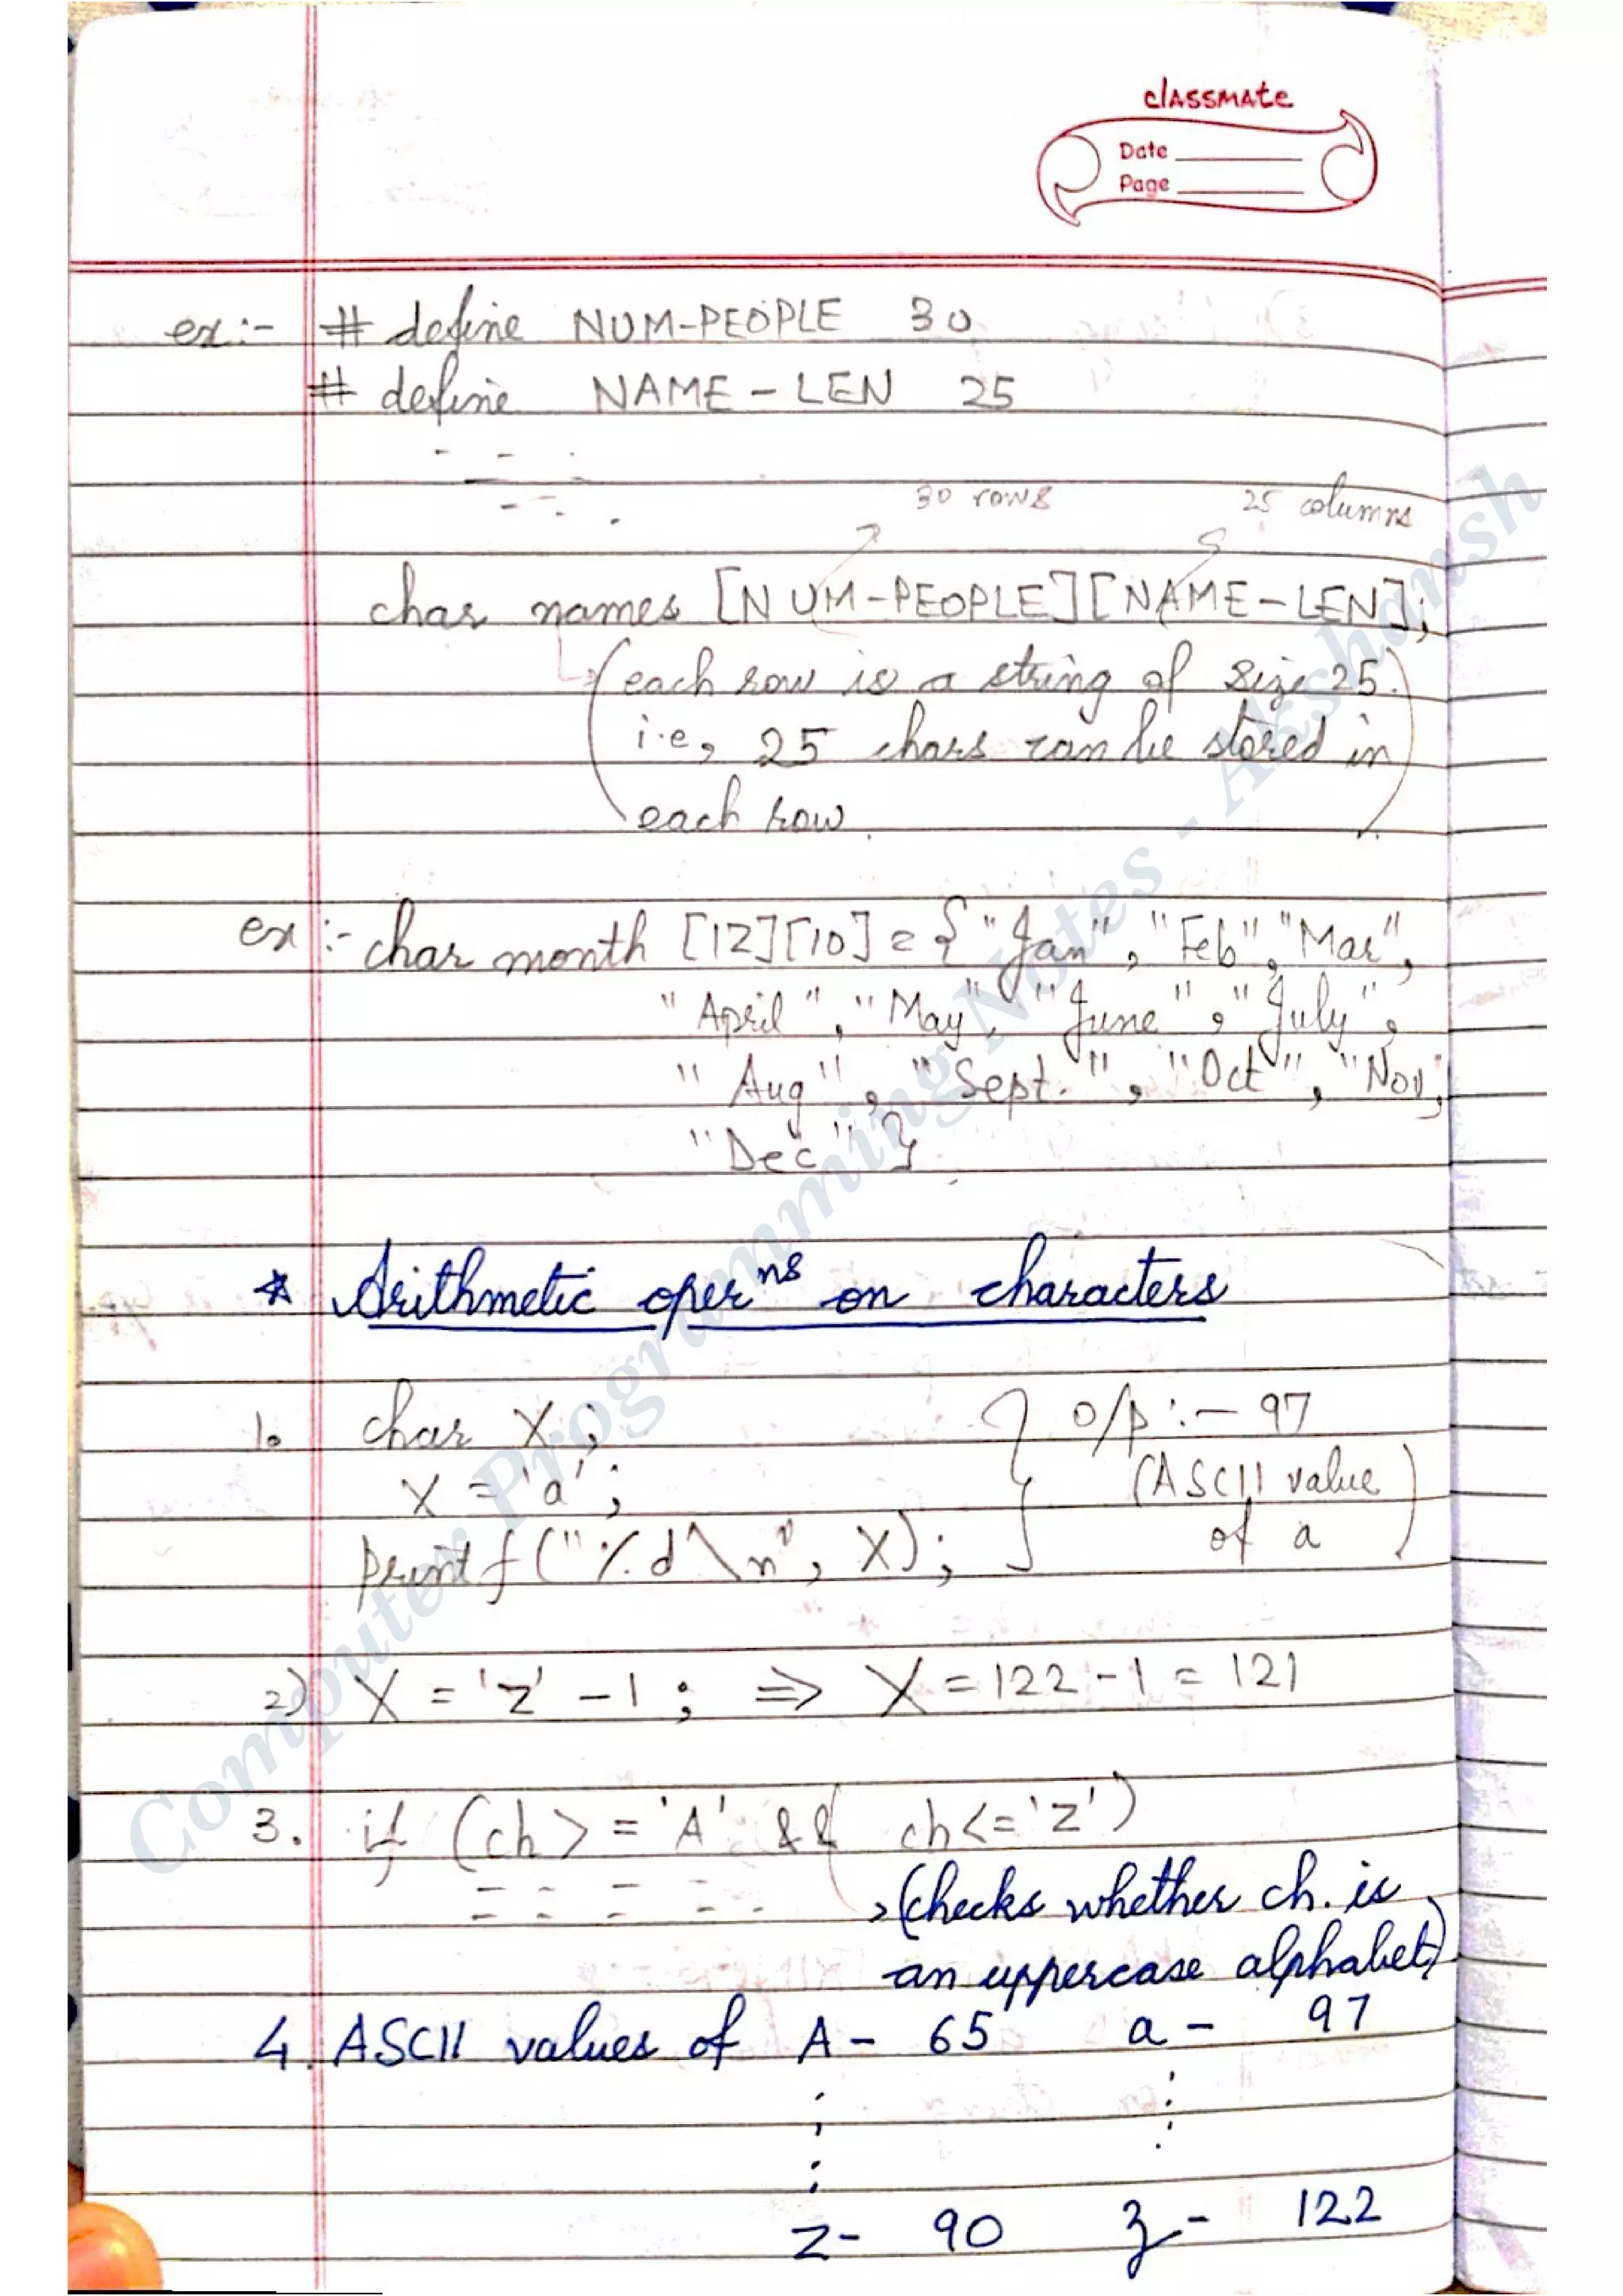 classmate
Date
Page
ex:- # define NUM-PEOPLE 30
# define NAME-LEN 25
30 rows 25 columns
char names [NUM-PEOPLE][NAME-LEN];
(each row is a string of size 25.
i.e, 25 chars can be stored in
each row.)
ex:- char month [12][10] = {"Jan", "Feb", "Mar",
"April", "May", "June", "July",
"Aug", "Sept.", "Oct", "Nov,
"Dec"}
* Arithmetic oper^ns on characters
1. char X; } o/p :- 97
X = 'a'; (ASCII value
printf("%d\n", X); of a)
2) X = 'z' - 1; ⇒ X = 122 - 1 = 121
3. if (ch >= 'A' && ch <= 'Z')
(checks whether ch. is
an uppercase alphabet)
4. ASCII values of A - 65 a - 97
Z - 90 z - 122
Computer Programming Notes - Akshansh